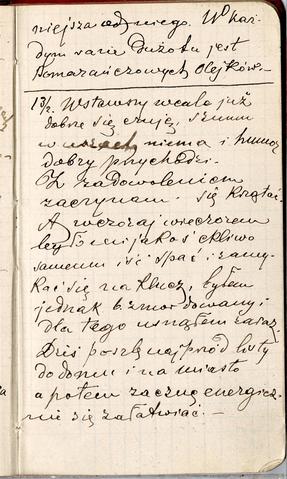 niejsza od niego. W każ-
dym razie dużo tu jest
pomarańczowych olejków. —
13/2. Wstawszy wcale już
dobrze się czuję, szumu
w uszach niema i humor
dobry przychodzi.
Z zadowoleniem
zaczynam się krzątać.
A wczoraj wieczorem
było mi jakoś ckliwo
samemu iść spać i zamy-
kać się na klucz, byłem
jednak b. zmordowany i
dla tego usnąłem zaraz.
Dziś poszlę najprzód listy
do domu i na miasto
a potem zacznę energicz-
nie się załatwiać. —